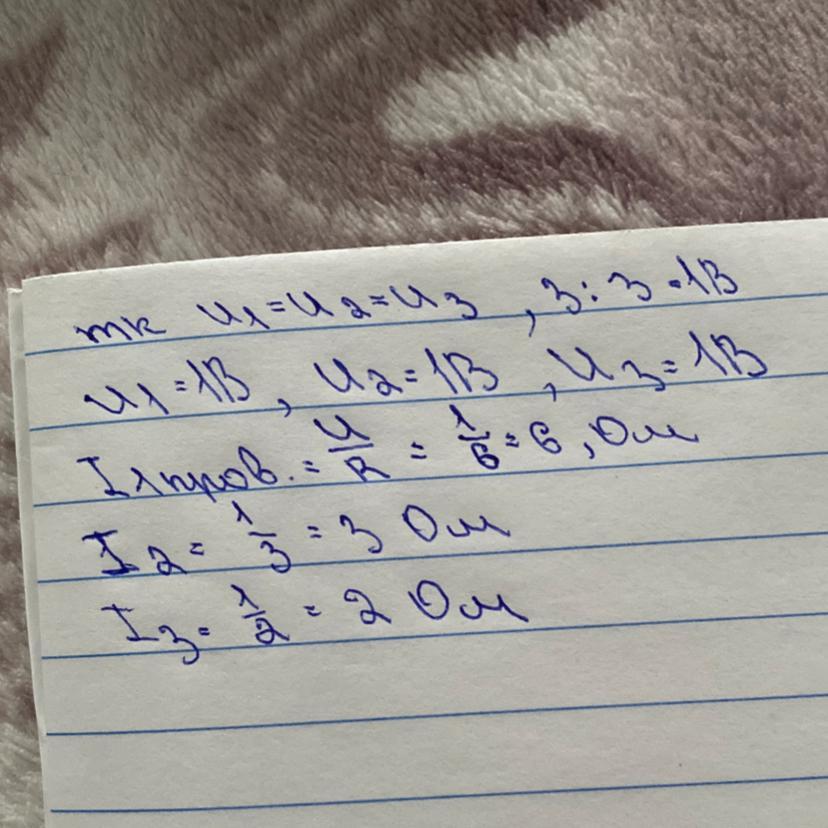 тк U1=U2=U3, 3:3=1В
U1=1В, U2=1В, U3=1В
I1пров.=U/R=1/6=6, Ом
I2=1/3=3 Ом
I3=1/2=2 Ом